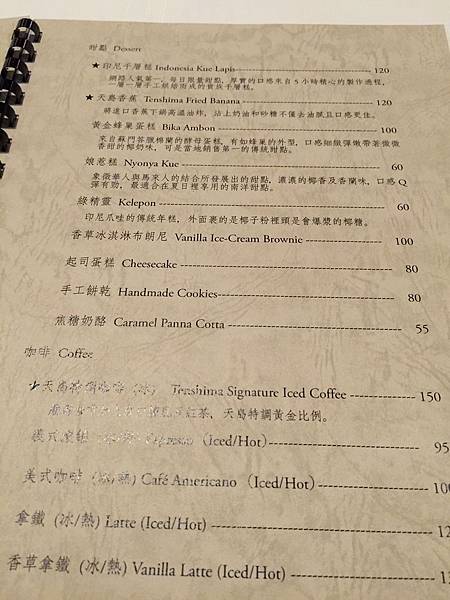 甜點 Dessert
★印尼千層糕 Indonesia Kue Lapis 120
網路人氣第一，每日限量甜點，厚實的口感來自5小時精心的製作過程，
一層一層手工烘焙而成的貴族千層糕。
★天島香蕉 Tenshima Fried Banana 120
將進口蕉蕉下鍋高溫油炸，沾上奶油和砂糖不僅去油膩且口感更佳。
黃金蜂巢蛋糕 Bika Ambon 100
來自蘇門答臘棉蘭的酵母蛋糕，有如蜂巢的外型，口感細緻彈嫩帶著微微
香甜的椰奶味，可是當地銷售第一的傳統甜點。
娘惹糕 Nyonya Kue 60
象徵華人與馬來人的結合所發展出的甜點，濃濃的椰香及香蘭味，口感Q
彈有勁，最適合在夏日裡享用的南洋甜點。
綠精靈 Kelepon 60
印尼爪哇的傳統年糕，外面裹的是椰子粉裡頭是會爆漿的椰糖。
香草冰淇淋布朗尼 Vanilla Ice-Cream Brownie 100
起司蛋糕 Cheesecake 80
手工餅乾 Handmade Cookies 80
焦糖奶酪 Caramel Panna Cotta 55
咖啡 Coffee
★天島特調咖啡（冰） Tenshima Signature Iced Coffee 150
紅茶，天島特調黃金比例。
Espresso （Iced/Hot） 95
美式咖啡 (冰/熱) Café Americano （Iced/Hot） 100
拿鐵 (冰/熱) Latte (Iced/Hot)
香草拿鐵 (冰/熱) Vanilla Latte (Iced/Hot)